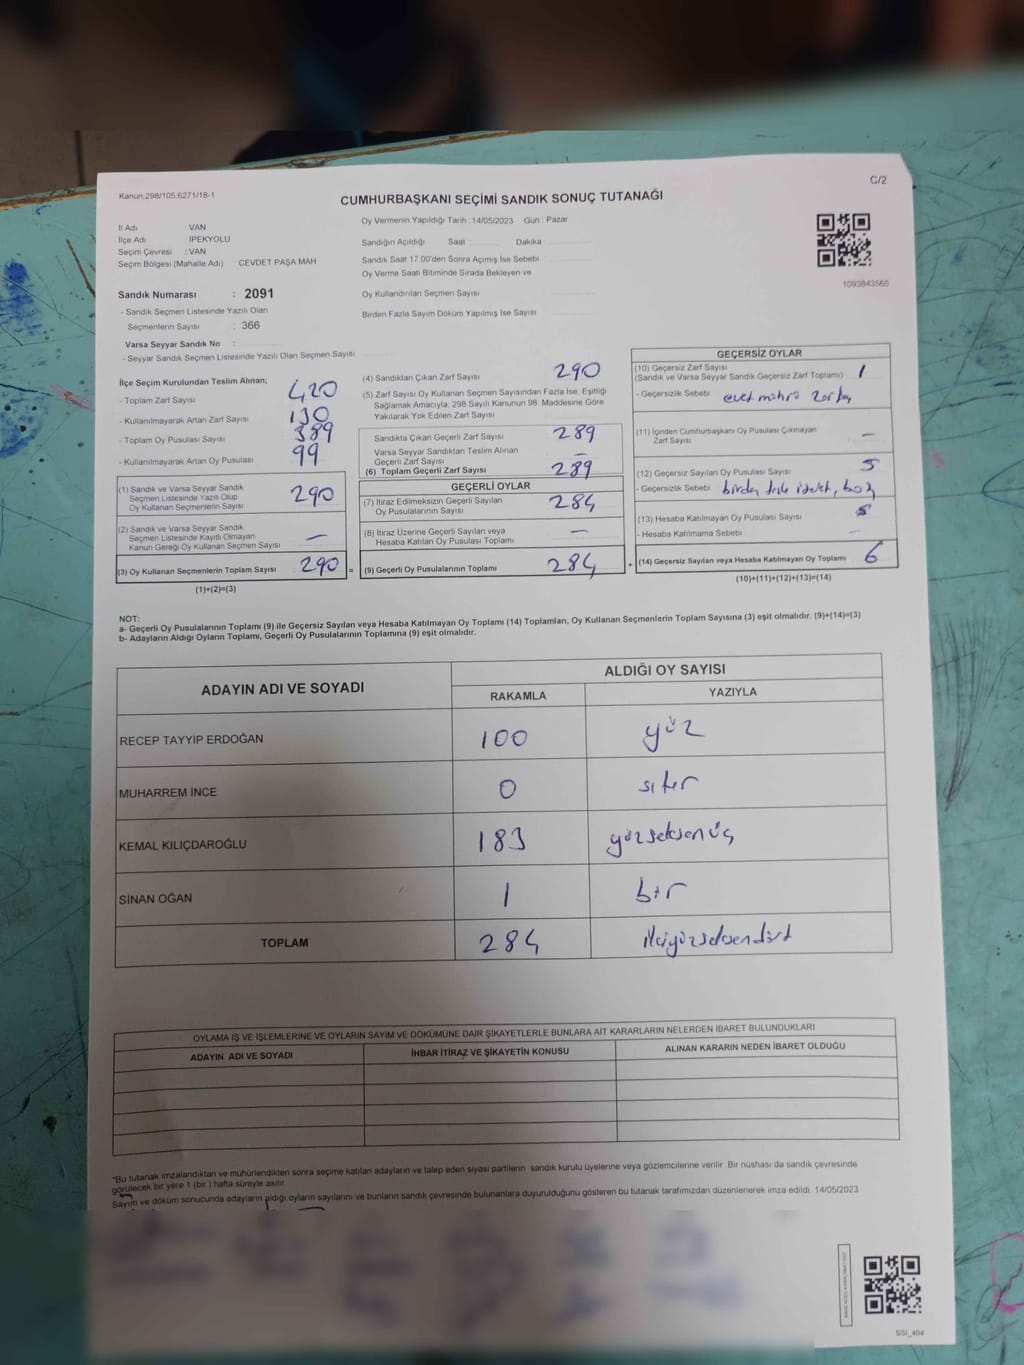 Kanun:298/105.6271/18-1
C/2
CUMHURBAŞKANI SEÇİMİ SANDIK SONUÇ TUTANAĞI
İl Adı VAN
İlçe Adı : İPEKYOLU
Seçim Çevresi : VAN
Seçim Bölgesi (Mahalle Adı) : CEVDET PAŞA MAH.
Oy Vermenin Yapıldığı Tarih :14/05/2023 Gün : Pazar
Sandığın Açıldığı Saat Dakika
Sandık Saat 17:00'den Sonra Açımış İse Sebebi
Oy Verme Saati Bitiminde Sırada Bekleyen ve
Oy Kullandırılan Seçmen Sayısı
Birden Fazla Sayım Döküm Yapılmış İse Sayısı
1093843565
Sandık Numarası : 2091
- Sandık Seçmen Listesinde Yazılı Olan
Seçmenlerin Sayısı : 366
Varsa Seyyar Sandık No :
- Seyyar Sandık Seçmen Listesinde Yazılı Olan Seçmen Sayısı
İlçe Seçim Kurulundan Teslim Alınan;
- Toplam Zarf Sayısı 420
- Kullanılmayarak Artan Zarf Sayısı 130
- Toplam Oy Pusulası Sayısı 389
- Kullanılmayarak Artan Oy Pusulası 99
(1) Sandık ve Varsa Seyyar Sandık
Seçmen Listesinde Yazılı Olup
Oy Kullanan Seçmenlerin Sayısı 290
(2) Sandık ve Varsa Seyyar Sandık
Seçmen Listesinde Kayıtlı Olmayan
Kanun Gereği Oy Kullanan Seçmen Sayısı —
(3) Oy Kullanan Seçmenlerin Toplam Sayısı 290 =
(1)+(2)=(3)
(4) Sandıktan Çıkan Zarf Sayısı 290
(5) Zarf Sayısı Oy Kullanan Seçmen Sayısından Fazla İse, Eşitliği
Sağlamak Amacıyla, 298 Sayılı Kanunun 98. Maddesine Göre
Yakılarak Yok Edilen Zarf Sayısı
Sandıkta Çıkan Geçerli Zarf Sayısı 289
Varsa Seyyar Sandıktan Teslim Alınan
Geçerli Zarf Sayısı —
(6) Toplam Geçerli Zarf Sayısı 289
GEÇERLİ OYLAR
(7) İtiraz Edilmeksizin Geçerli Sayılan
Oy Pusulalarının Sayısı 284
(8) İtiraz Üzerine Geçerli Sayılan veya
Hesaba Katılan Oy Pusulası Toplamı —
(9) Geçerli Oy Pusulalarının Toplamı 284 +
GEÇERSİZ OYLAR
(10) Geçersiz Zarf Sayısı 1
(Sandık ve Varsa Seyyar Sandık Geçersiz Zarf Toplamı)
- Geçersizlik Sebebi
(11) İçinden Cumhurbaşkanı Oy Pusulası Çıkmayan
Zarf Sayısı —
(12) Geçersiz Sayılan Oy Pusulası Sayısı 5
- Geçersizlik Sebebi
(13) Hesaba Katılmayan Oy Pusulası Sayısı
- Hesaba Katılmama Sebebi —
(14) Geçersiz Sayılan veya Hesaba Katılmayan Oy Toplamı 6
(10)+(11)+(12)+(13)=(14)
NOT:
a- Geçerli Oy Pusulalarının Toplamı (9) ile Geçersiz Sayılan veya Hesaba Katılmayan Oy Toplamı (14) Toplamları, Oy Kullanan Seçmenlerin Toplam Sayısına (3) eşit olmalıdır. (9)+(14)=(3)
b- Adayların Aldığı Oyların Toplamı, Geçerli Oy Pusulalarının Toplamına (9) eşit olmalıdır.
ADAYIN ADI VE SOYADI
ALDIĞI OY SAYISI
RAKAMLA YAZIYLA
RECEP TAYYİP ERDOĞAN 100 yüz
MUHARREM İNCE 0 sıfır
KEMAL KILIÇDAROĞLU 183 yüzseksenüç
SİNAN OĞAN 1 bir
TOPLAM 284 ikiyüzseksendört
OYLAMA İŞ VE İŞLEMLERİNE VE OYLARIN SAYIM VE DÖKÜMÜNE DAİR ŞİKAYETLERLE BUNLARA AİT KARARLARIN NELERDEN İBARET BULUNDUKLARI
ADAYIN ADI VE SOYADI İHBAR İTİRAZ VE ŞİKAYETİN KONUSU ALINAN KARARIN NEDEN İBARET OLDUĞU
*Bu tutanak imzalandıktan ve mühürlendikten sonra seçime katılan adayların ve talep eden siyasi partilerin sandık kurulu üyelerine veya gözlemcilerine verilir. Bir nüshası da sandık çevresinde
görülecek bir yere 1 (bir) hafta süreyle asılır.
Sayım ve döküm sonucunda adayların aldığı oyların sayılarını ve bunların sandık çevresinde bulunanlara duyurulduğunu gösteren bu tutanak tarafımızdan düzenlenerek imza edildi. 14/05/2023
SSI_404